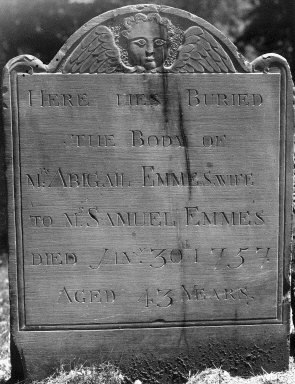 HERE LIES BURIED
THE BODY OF
Mrs ABIGAIL EMMES WIFE
TO Mr SAMUEL EMMES
DIED JANry 30th 1757
AGED 43 YEARS.